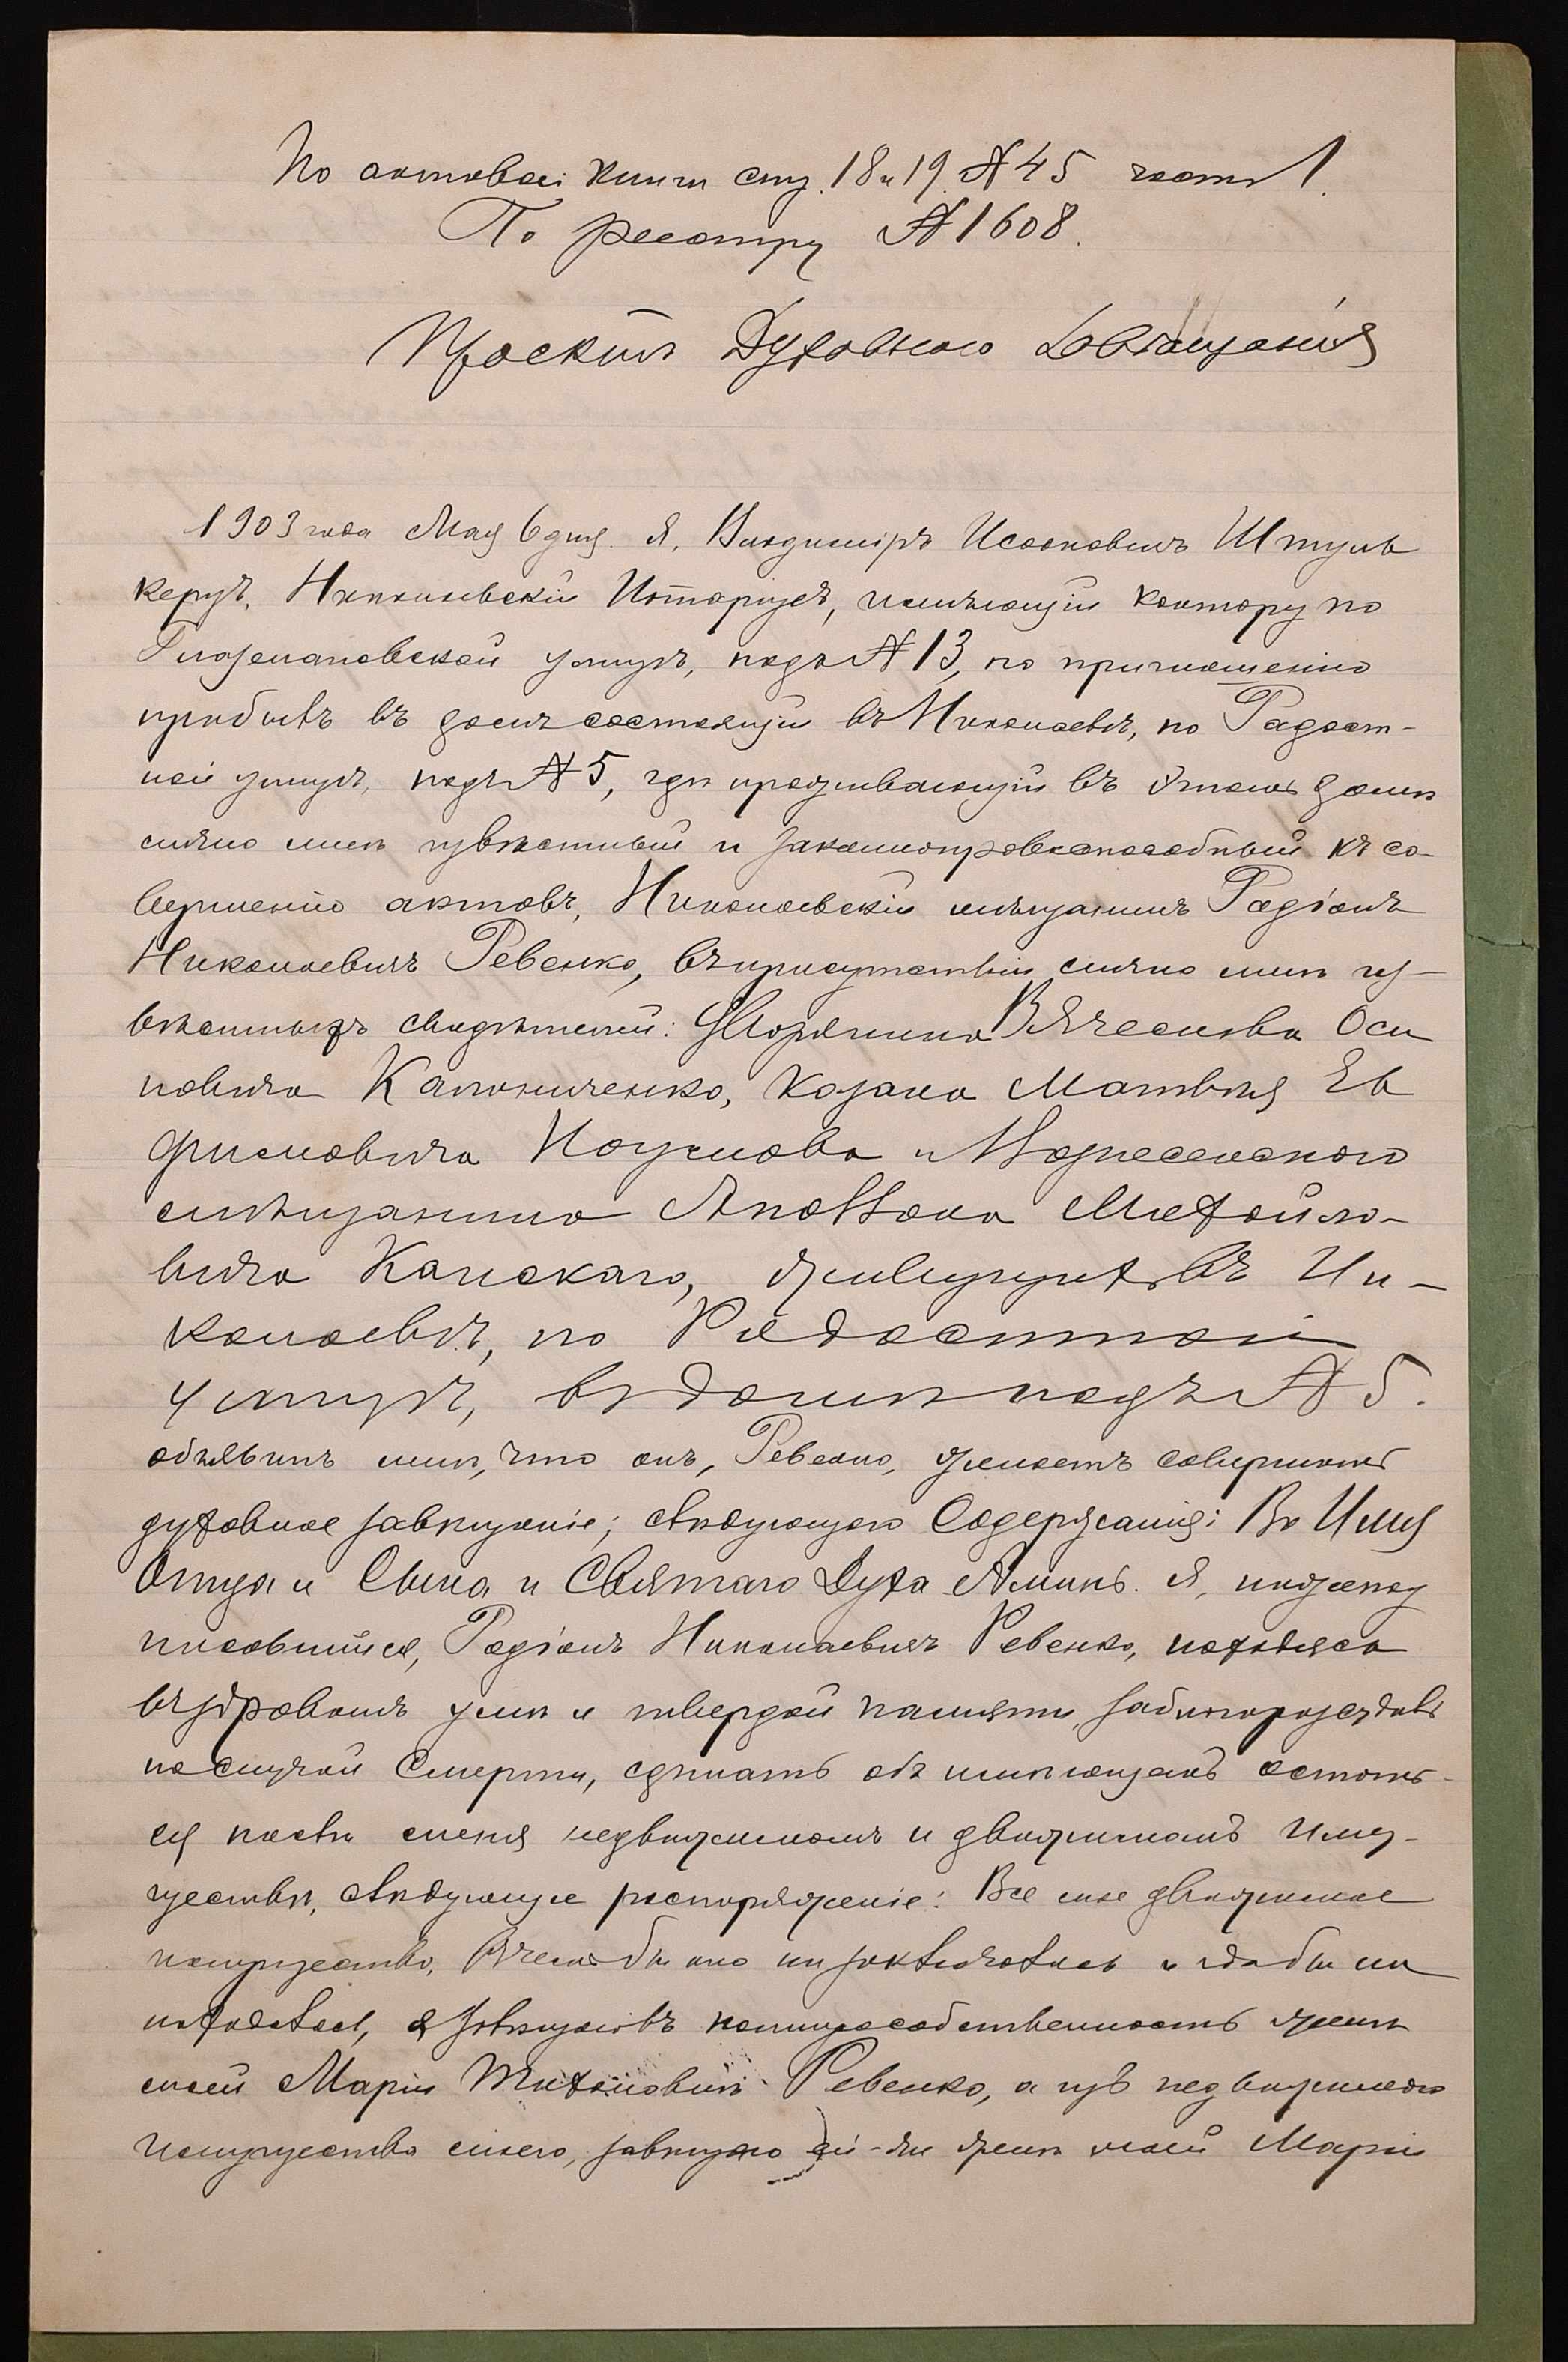 По актовой книги стр. 18 и 19. № 45 часть 1.
По реестру № 1608.
Проектъ Духовнаго Завѣщанія
1903 года Мая 6 дня. Я, Владиміръ Исааковичъ Штуль
керцъ, Николаевскій Нотаріусъ, имѣющій контору по
Глазенаповской улицѣ, подъ № 13, по приглашенію
прибылъ въ домъ состоящій въ Николаевѣ, по Радост-
ной улицѣ, подъ № 5, гдѣ проживающій въ этомъ домѣ
лично мнѣ извѣстный и законноправоспособный къ со-
вершенію актовъ, Николаевскій мѣщанинъ Радіонъ
Николаевичъ Ревенко, въ присутствіи лично мнѣ из-
вѣстныхъ свидѣтелей: Дворянина Вячеслава Оси
повича Капниченко, Козака Матвѣя Ев
фимовича Наумова и Вознесенского
мѣщанина Аполлона Михайло-
вича Канскаго, живущихъ въ Ни-
колаевѣ, по Радостной
улицѣ, въ домѣ подъ № 5.
объявилъ мнѣ, что онъ, Ревенко, желаетъ совершить
духовное завѣщаніе, слѣдующаго Содержанія: Во Имя
Отца и Сына и Святаго Духа Аминь. Я, нижепод
писавшійся, Радіонъ Николаевичъ Ревенко, находясь
въ здравомъ умѣ и твердой памяти, заблагоразсудилъ
на случай Смерти, сдѣлать объ имѣющемъ остать-
ся послѣ меня недвижимомъ и движимомъ Иму-
ществѣ, слѣдующее распоряженіе: Все мое движимое
имущество, въ чемъ бы оно ни заключалось и гдѣ бы ни
находилось, я завѣщаю въ полную собственность женѣ
моей Маріи Тихоновнѣ Ревенко, а изъ недвижимого
Имущества моего, завѣщаю ей-же женѣ моей Маріи